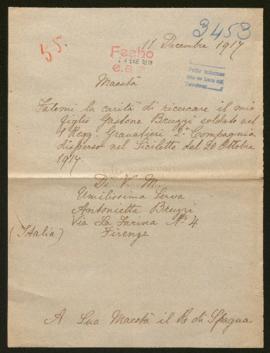 55.
3453
Fecho
11 Decembre 1917
Maestà
Fatemi la carità di ricercare il mio
figlio Gastone Bruzzi soldato nel
1° Regg. Granatieri 2ª Compagnia
disperso nel 30 Ottobre
1917
Di V. M.
Umilissima Serva
Antonietta Bruzzi
Via La Farina N° 4
(Italia) Firenze
A Sua Maestà il Re di Spagna